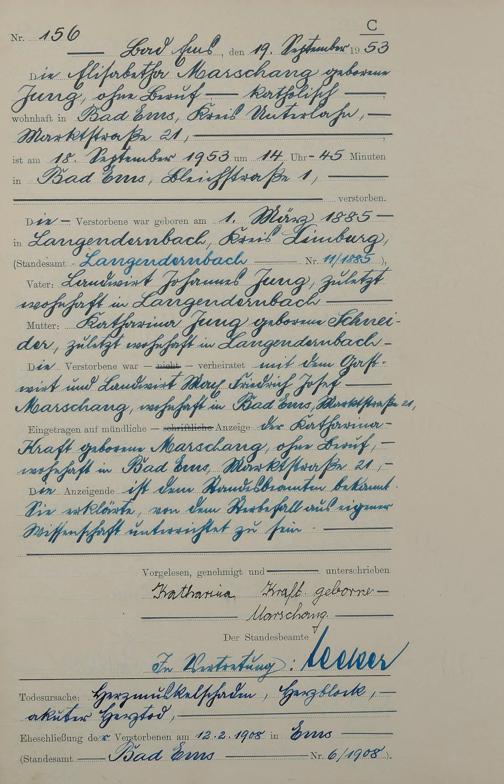 C
Nr. 156
Bad Ems, den 19. September 1953
Die Elisabetha Marschang geborene
Jung, ohne Beruf — katholisch —
wohnhaft in Bad Ems, Kreis Unterlahn, —
Marktstraße 21, —
ist am 18. September 1953 um 14 Uhr 45 Minuten
in Bad Ems, Bleichstraße 1, —
verstorben.
Die — Verstorbene war geboren am 1. März 1885 —
in Langendernbach, Kreis Limburg,
(Standesamt Langendernbach — Nr. 11/1885),
Vater: Landwirt Johannes Jung, zuletzt
wohnhaft in Langendernbach —
Mutter: Katharina Jung geborene Schnei-
der, zuletzt wohnhaft in Langendernbach —
Die Verstorbene war — nicht — verheiratet mit dem Gast-
wirt und Landwirt Friedrich Josef —
Marschang, wohnhaft in Bad Ems, Marktstraße 21,
Eingetragen auf mündliche — schriftliche Anzeige der Katharina
Kraft geborene Marschang, ohne Beruf, —
wohnhaft in Bad Ems, Marktstraße 21, —
Die Anzeigende ist dem Standesbeamten bekannt.
Sie erklärte, von dem Sterbefall aus eigener
Wissenschaft unterrichtet zu sein. —
Vorgelesen, genehmigt und — unterschrieben
Katharina Kraft geborne —
Marschang. —
Der Standesbeamte
In Vertretung:
Todesursache: Herzmuskelschaden, Herzblock, —
akuter Herztod, —
Eheschließung der Verstorbenen am 12.2.1908 in Ems —
(Standesamt — Bad Ems — Nr. 6/1908).